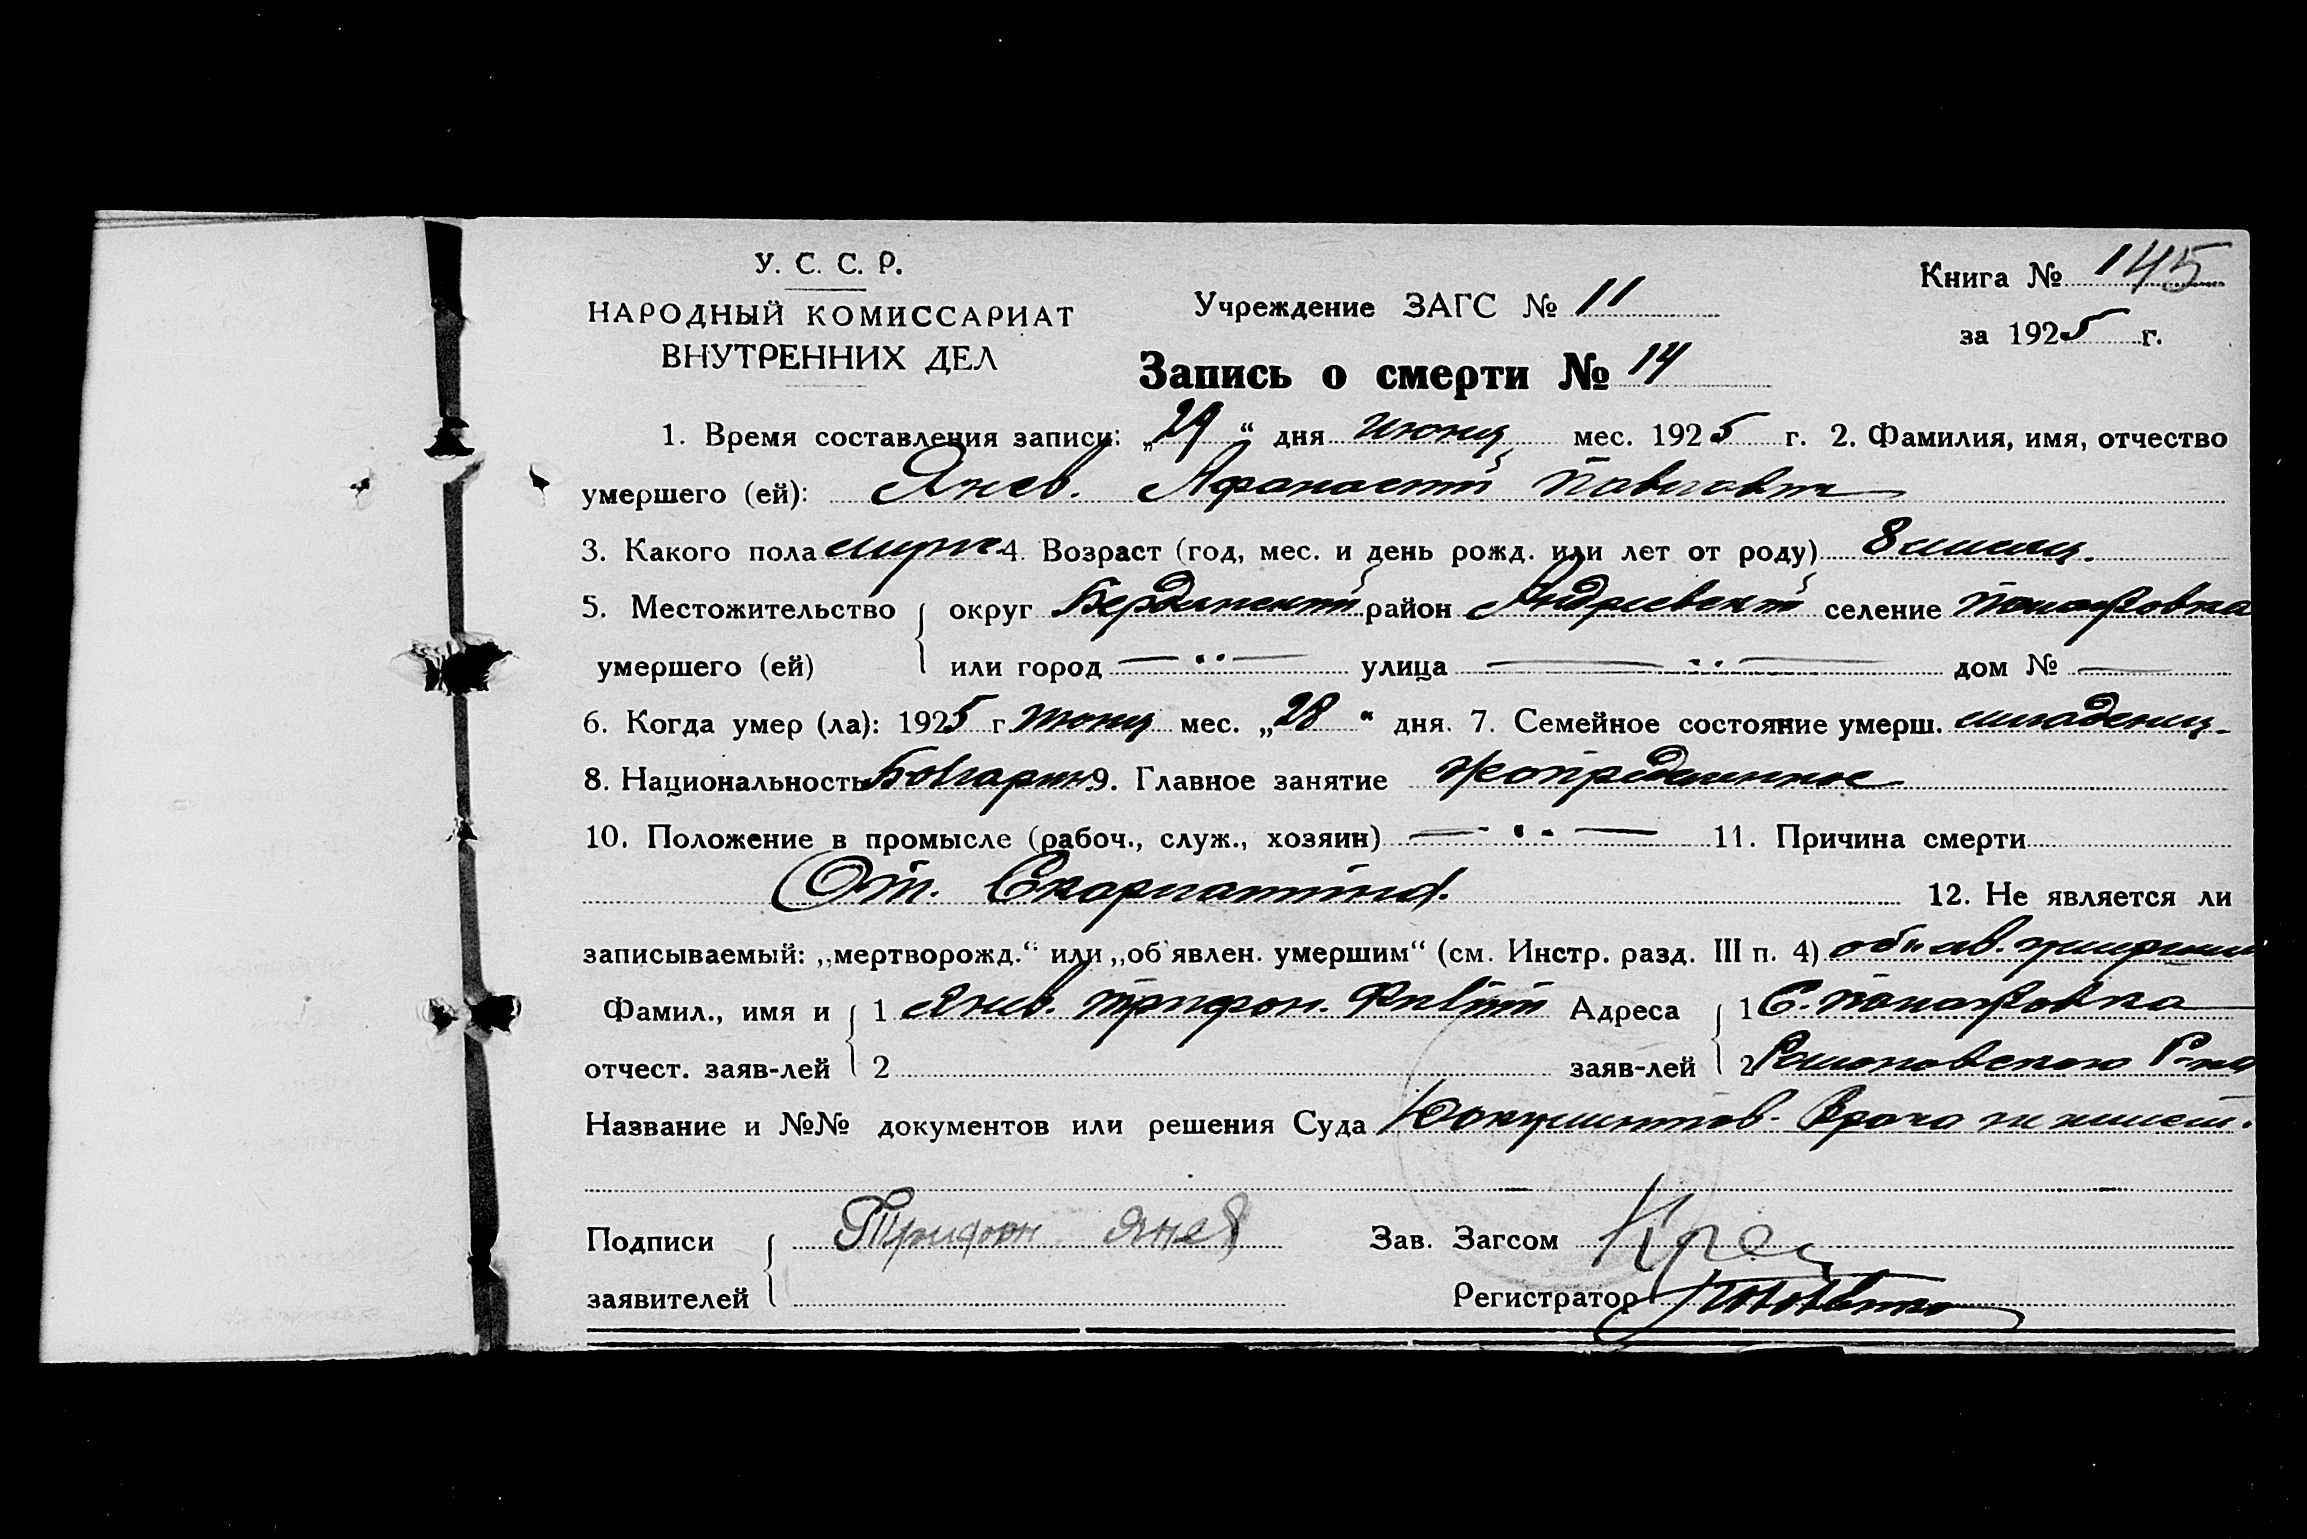 У. С. С. Р.
НАРОДНЫЙ КОМИССАРИАТ
ВНУТРЕННИХ ДЕЛ
Учреждение ЗАГС № 11
Книга № 145
за 1925 г.
Запись о смерти № 14
1. Время составления записи: „29“ дня Июня мес. 1925 г. 2. Фамилия, имя, отчество
умершего (ей): Янев. Афанасий Павлович
3. Какого пола мужс 4. Возраст (год, мес. и день рожд. или лет от роду) 8 месяц.
5. Местожительство округ Бердянский район Андреевский селение
умершего (ей) или город улица дом №
6. Когда умер (ла): 1925 г. Июня мес. „28“ дня. 7. Семейное состояние умерш. младенец
8. Национальность Болгарин 9. Главное занятие
10. Положение в промысле (рабоч., служ., хозяин) 11. Причина смерти
От. Скарлатины. 12. Не является ли
записываемый: „мертворожд.“ или „об'явлен. умершим“ (см. Инстр. разд. III п. 4) об'яв. умершим
Фамил., имя и 1 Янев. Трифон. Адреса 1 С.
отчест. заяв-лей 2 заяв-лей 2 Р-на
Название и №№ документов или решения Суда Документов. Врача не имеет.
Подписи Трифон Янев Зав. Загсом
заявителей Регистратор